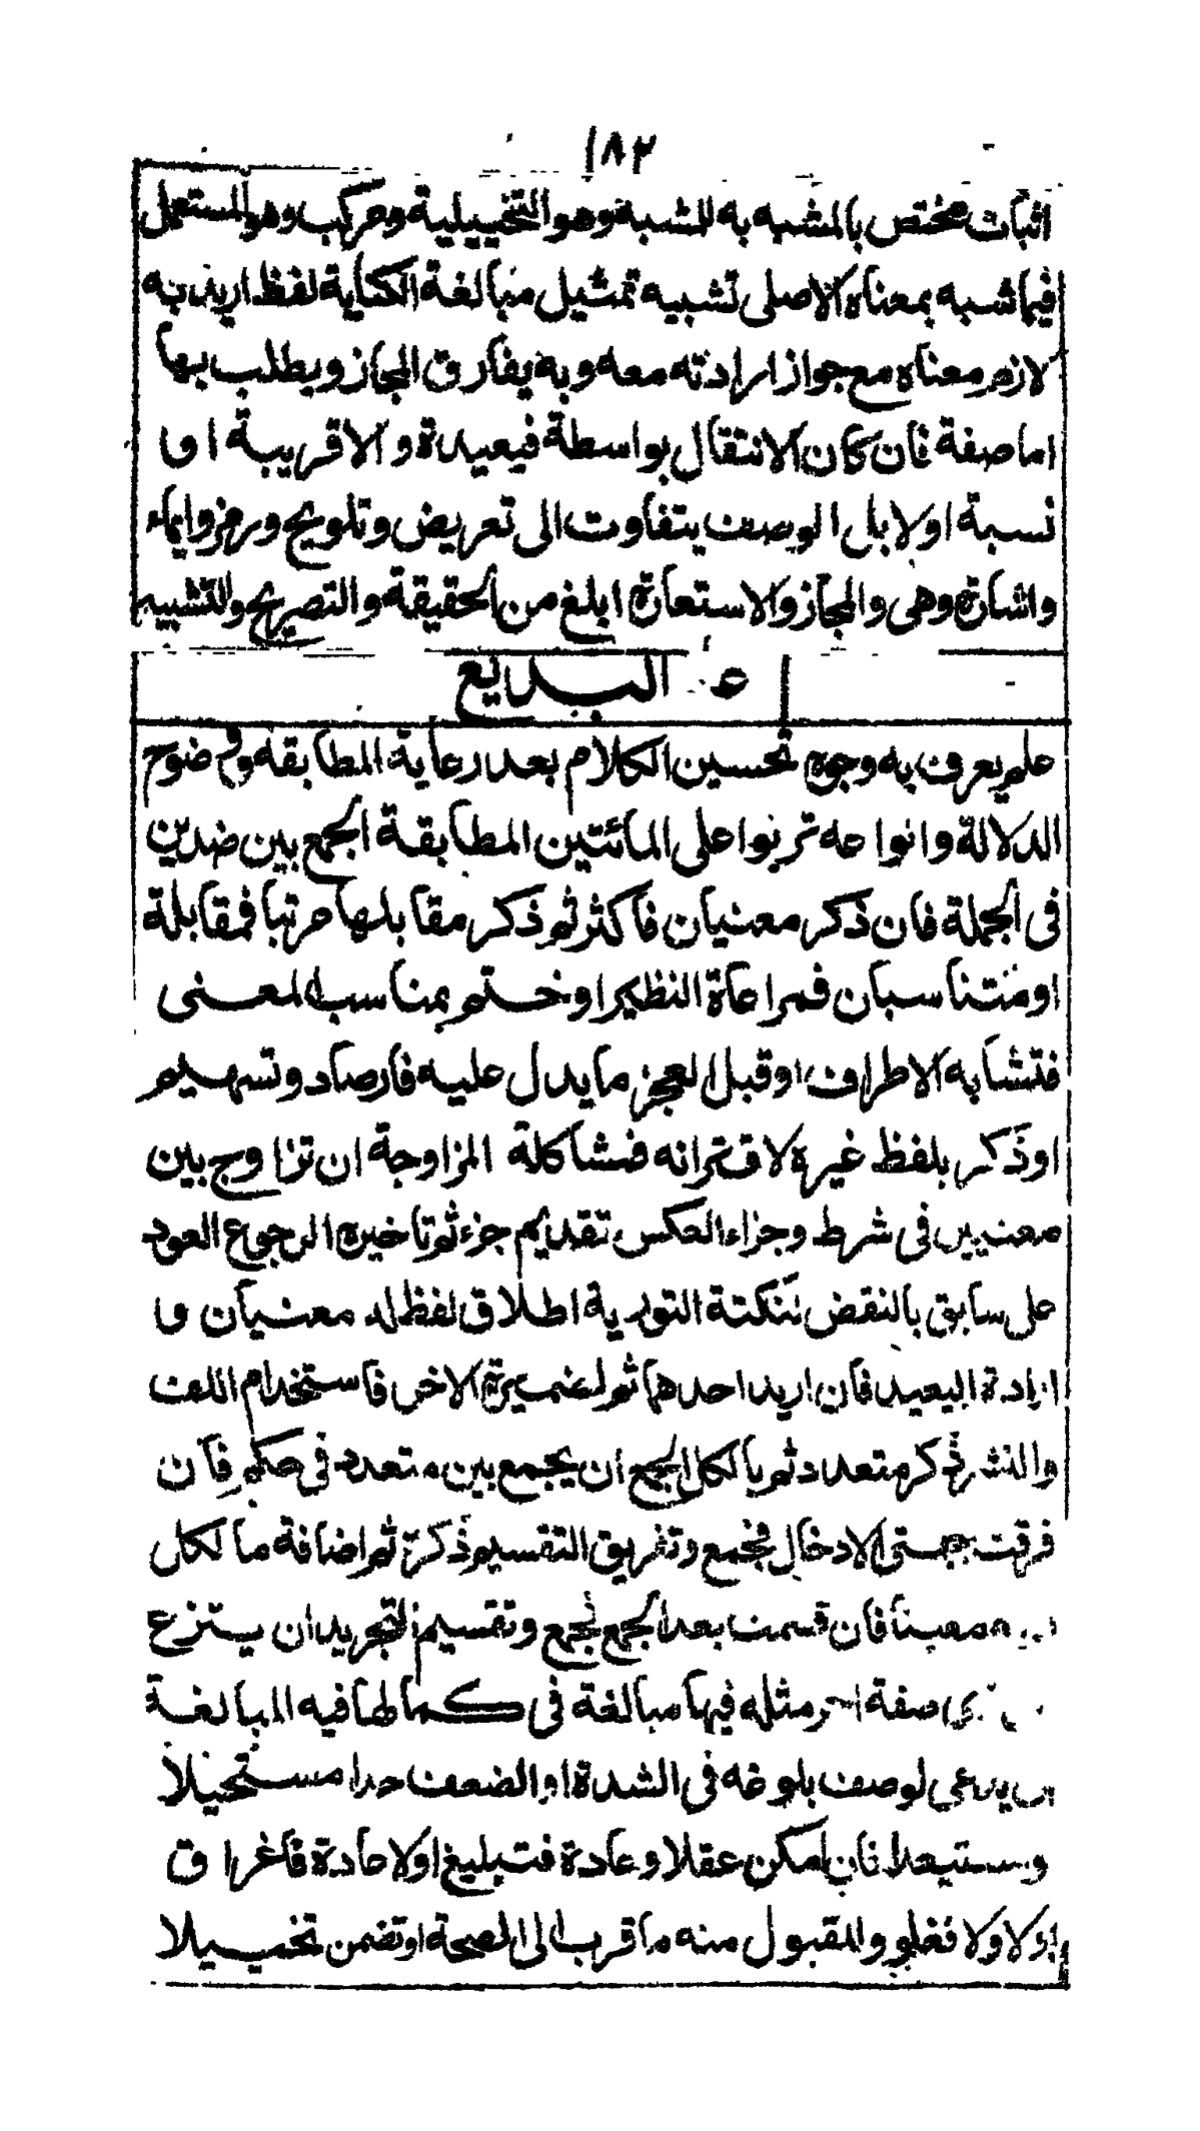 ١٨٢
اثبات مختص بالمشبه به للمشبه وهو التخييلية ومركب وهو المستعمل
فيما شبه بمعناه الاصلى تشبيه تمثيل مبالغة الكناية لفظ اريد به
لازم معناه مع جواز ارادته معه وبه يفارق المجاز ويطلب بها
اما صفة فان كان الانتقال بواسطة فبعيدة والا قريبة او
نسبة اولا بل الوصف يتفاوت الى تعريض وتلويح ورمز وايماء
واشارة وهى والمجاز والاستعارة ابلغ من الحقيقة والتصريح والتشبيه
البديع
علم يعرف به وجوه تحسين الكلام بعد رعاية المطابقه وضوح
الدلالة وانواعه تربوا على المائتين المطابقة الجمع بين ضدين
فى الجملة فان ذكر معنيان فاكثر ثم ذكر مقابلها مرتبا فمقابلة
او متناسبان فمراعاة النظير او ختم بمناسب المعنى
فتشابه الاطراف او قبل العجز ما يدل عليه فارصاد وتسهيم
او ذكر بلفظ غيره لاقترانه فمشاكلة المزاوجة ان تزاوج بين
معنيين فى شرط وجزاء العكس تقديم جزء ثم تاخيره الرجوع العود
على سابق بالنقض لنكتة التورية اطلاق لفظ له معنيان و
ارادة البعيد فان اريد احدهما ثم لضميره الاخر فاستخدام اللف
والنشر ذكر متعدد ثم ما لكل الجمع ان يجمع بين متعدد فى حكم فان
فرقت جهتى الادخال فجمع وتفريق التقسيم ذكره ثم اضافة ما لكل
معينا فان قسمت بعد الجمع فجمع وتقسيم التجريد ان ينتزع
صفة اخر مثله فيها مبالغة فى كمالها فيه المبالغة
يدعى لوصف بلوغه فى الشدة او الضعف حدا مستحيلا
ومستبعدا فان امكن عقلا وعادة فتبليغ اولا عادة فاغراق
اولا ولا فغلو والمقبول منه ما قرب الى الصحة او تضمن تخييلا